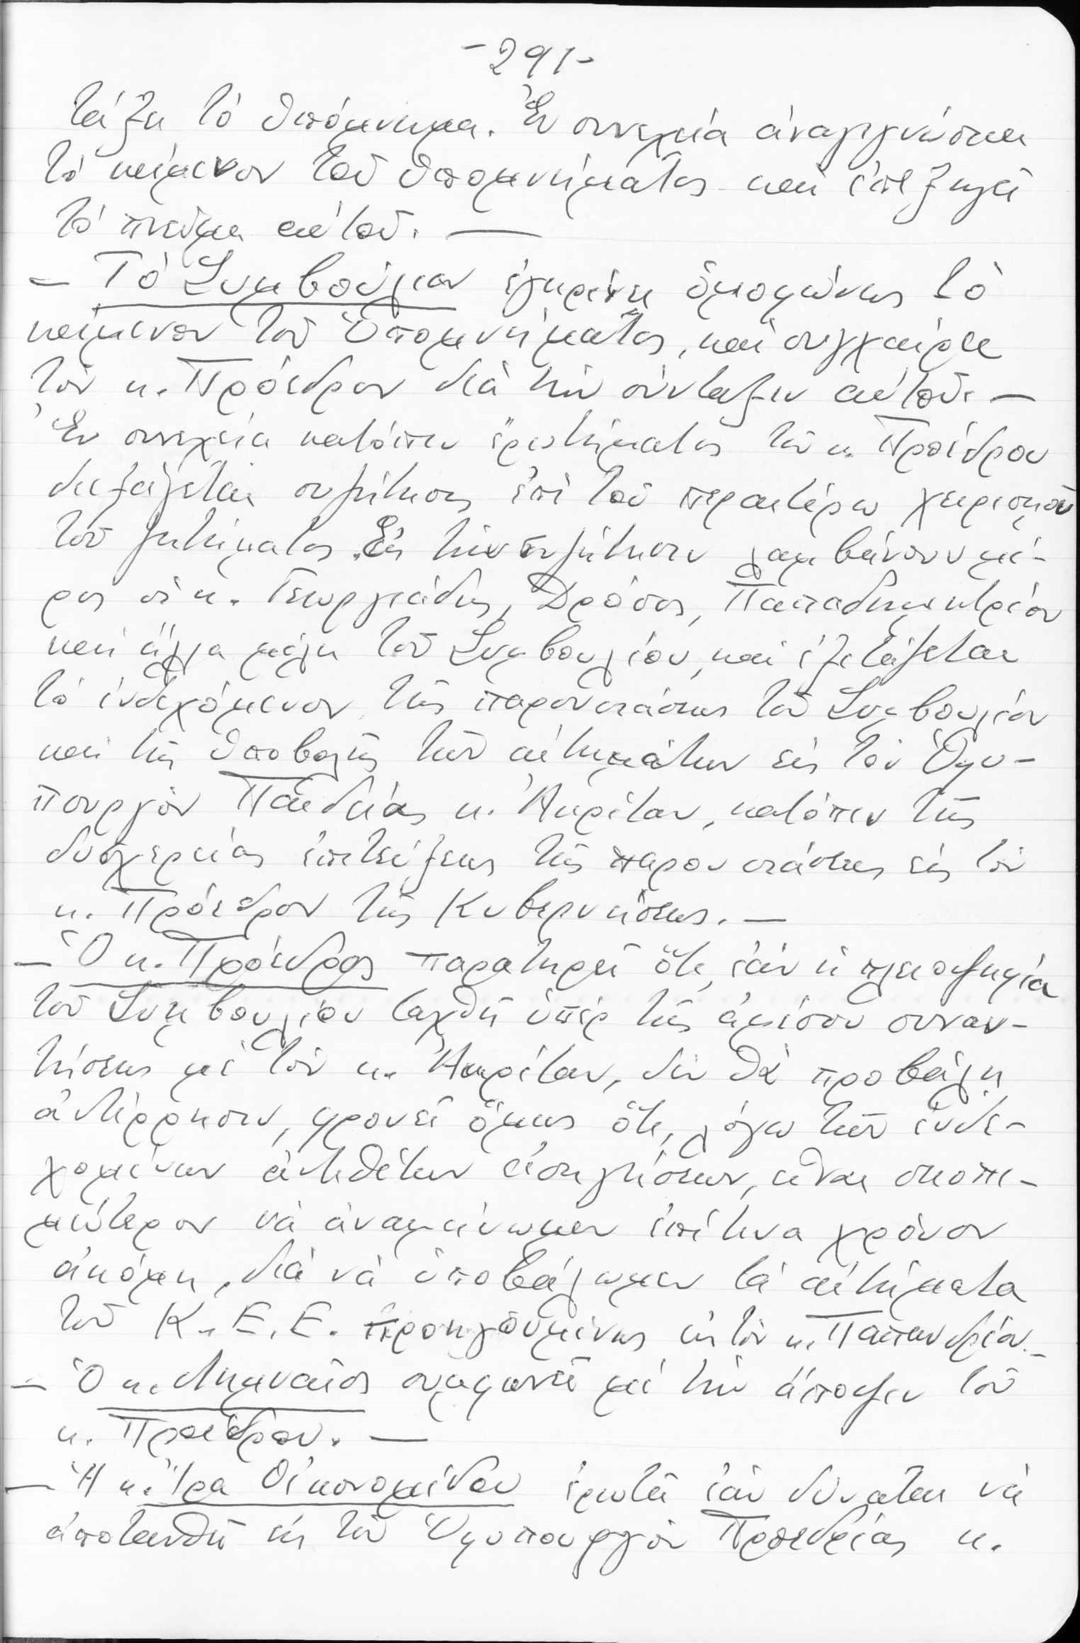 -291-
τάξη τό ὑπόμνημα. Ἐν συνεχεία ἀναγιγνώσκει
τό κείμενον τοῦ ὑπομνήματος καί ἐπεξηγεῖ
τό πνεῦμα αὐτοῦ. —
- Τό Συμβούλιον ἐγκρίνει ὁμοφώνως τό
κείμενον τοῦ Ὑπομνήματος, καί συγχαίρει
τόν κ. Πρόεδρον διά τήν σύνταξιν αὐτοῦ. —
Ἐν συνεχεία κατόπιν ἐρωτήματος τοῦ κ. Προέδρου
διεξάγεται συζήτησις ἐπί τοῦ περαιτέρω χειρισμοῦ
τοῦ ζητήματος. Εἰς τήν συζήτησιν λαμβάνουν μέ-
ρος οἱ κ. Γεωργιάδης, Δρόσος, Παπαδημητρίου
καί ἄλλα μέλη τοῦ Συμβουλίου, καί ἐξετάζεται
τό ἐνδεχόμενον τῆς παρουσιάσεως τοῦ Συμβουλίου
καί τῆς ὑποβολῆς τῶν αἰτημάτων εἰς τόν Ὑφυ-
πουργόν Παιδείας κ. Ἀκρίταν, κατόπιν τῆς
δυσχερείας ἐπιτεύξεως τῆς παρουσιάσεως εἰς τόν
κ. Πρόεδρον τῆς Κυβερνήσεως. —
- Ὁ κ. Πρόεδρος παρατηρεῖ ὅτι, ἐάν ἡ πλειοψηφία
τοῦ Συμβουλίου ταχθῆ ὑπέρ τῆς ἀμέσου συναν-
τήσεως μέ τόν κ. Ἀκρίταν, δέν θά προβάλη
ἀντίρρησιν, φρονεῖ ὅμως ὅτι, λόγω τῶν ἐνδε-
χομένων ἀντιθέτων εἰσηγήσεων, εἶναι σκοπι-
μώτερον νά ἀναμείνωμεν ἐπί τινα χρόνον
ἀκόμη, διά νά ὑποβάλωμεν τά αἰτήματα
τοῦ Κ.Ε.Ε. προηγουμένως εἰς τόν κ. Παπανδρέου. -
- Ὁ κ. Λημναῖος συμφωνεῖ μέ τήν ἄποψιν τοῦ
κ. Προέδρου. —
- Ἡ κ. Ἴρα Οἰκονομίδου ἐρωτᾶ ἐάν δύναται νά
ἀποτανθῆ εἰς τόν Ὑφυπουργόν Προεδρίας κ.